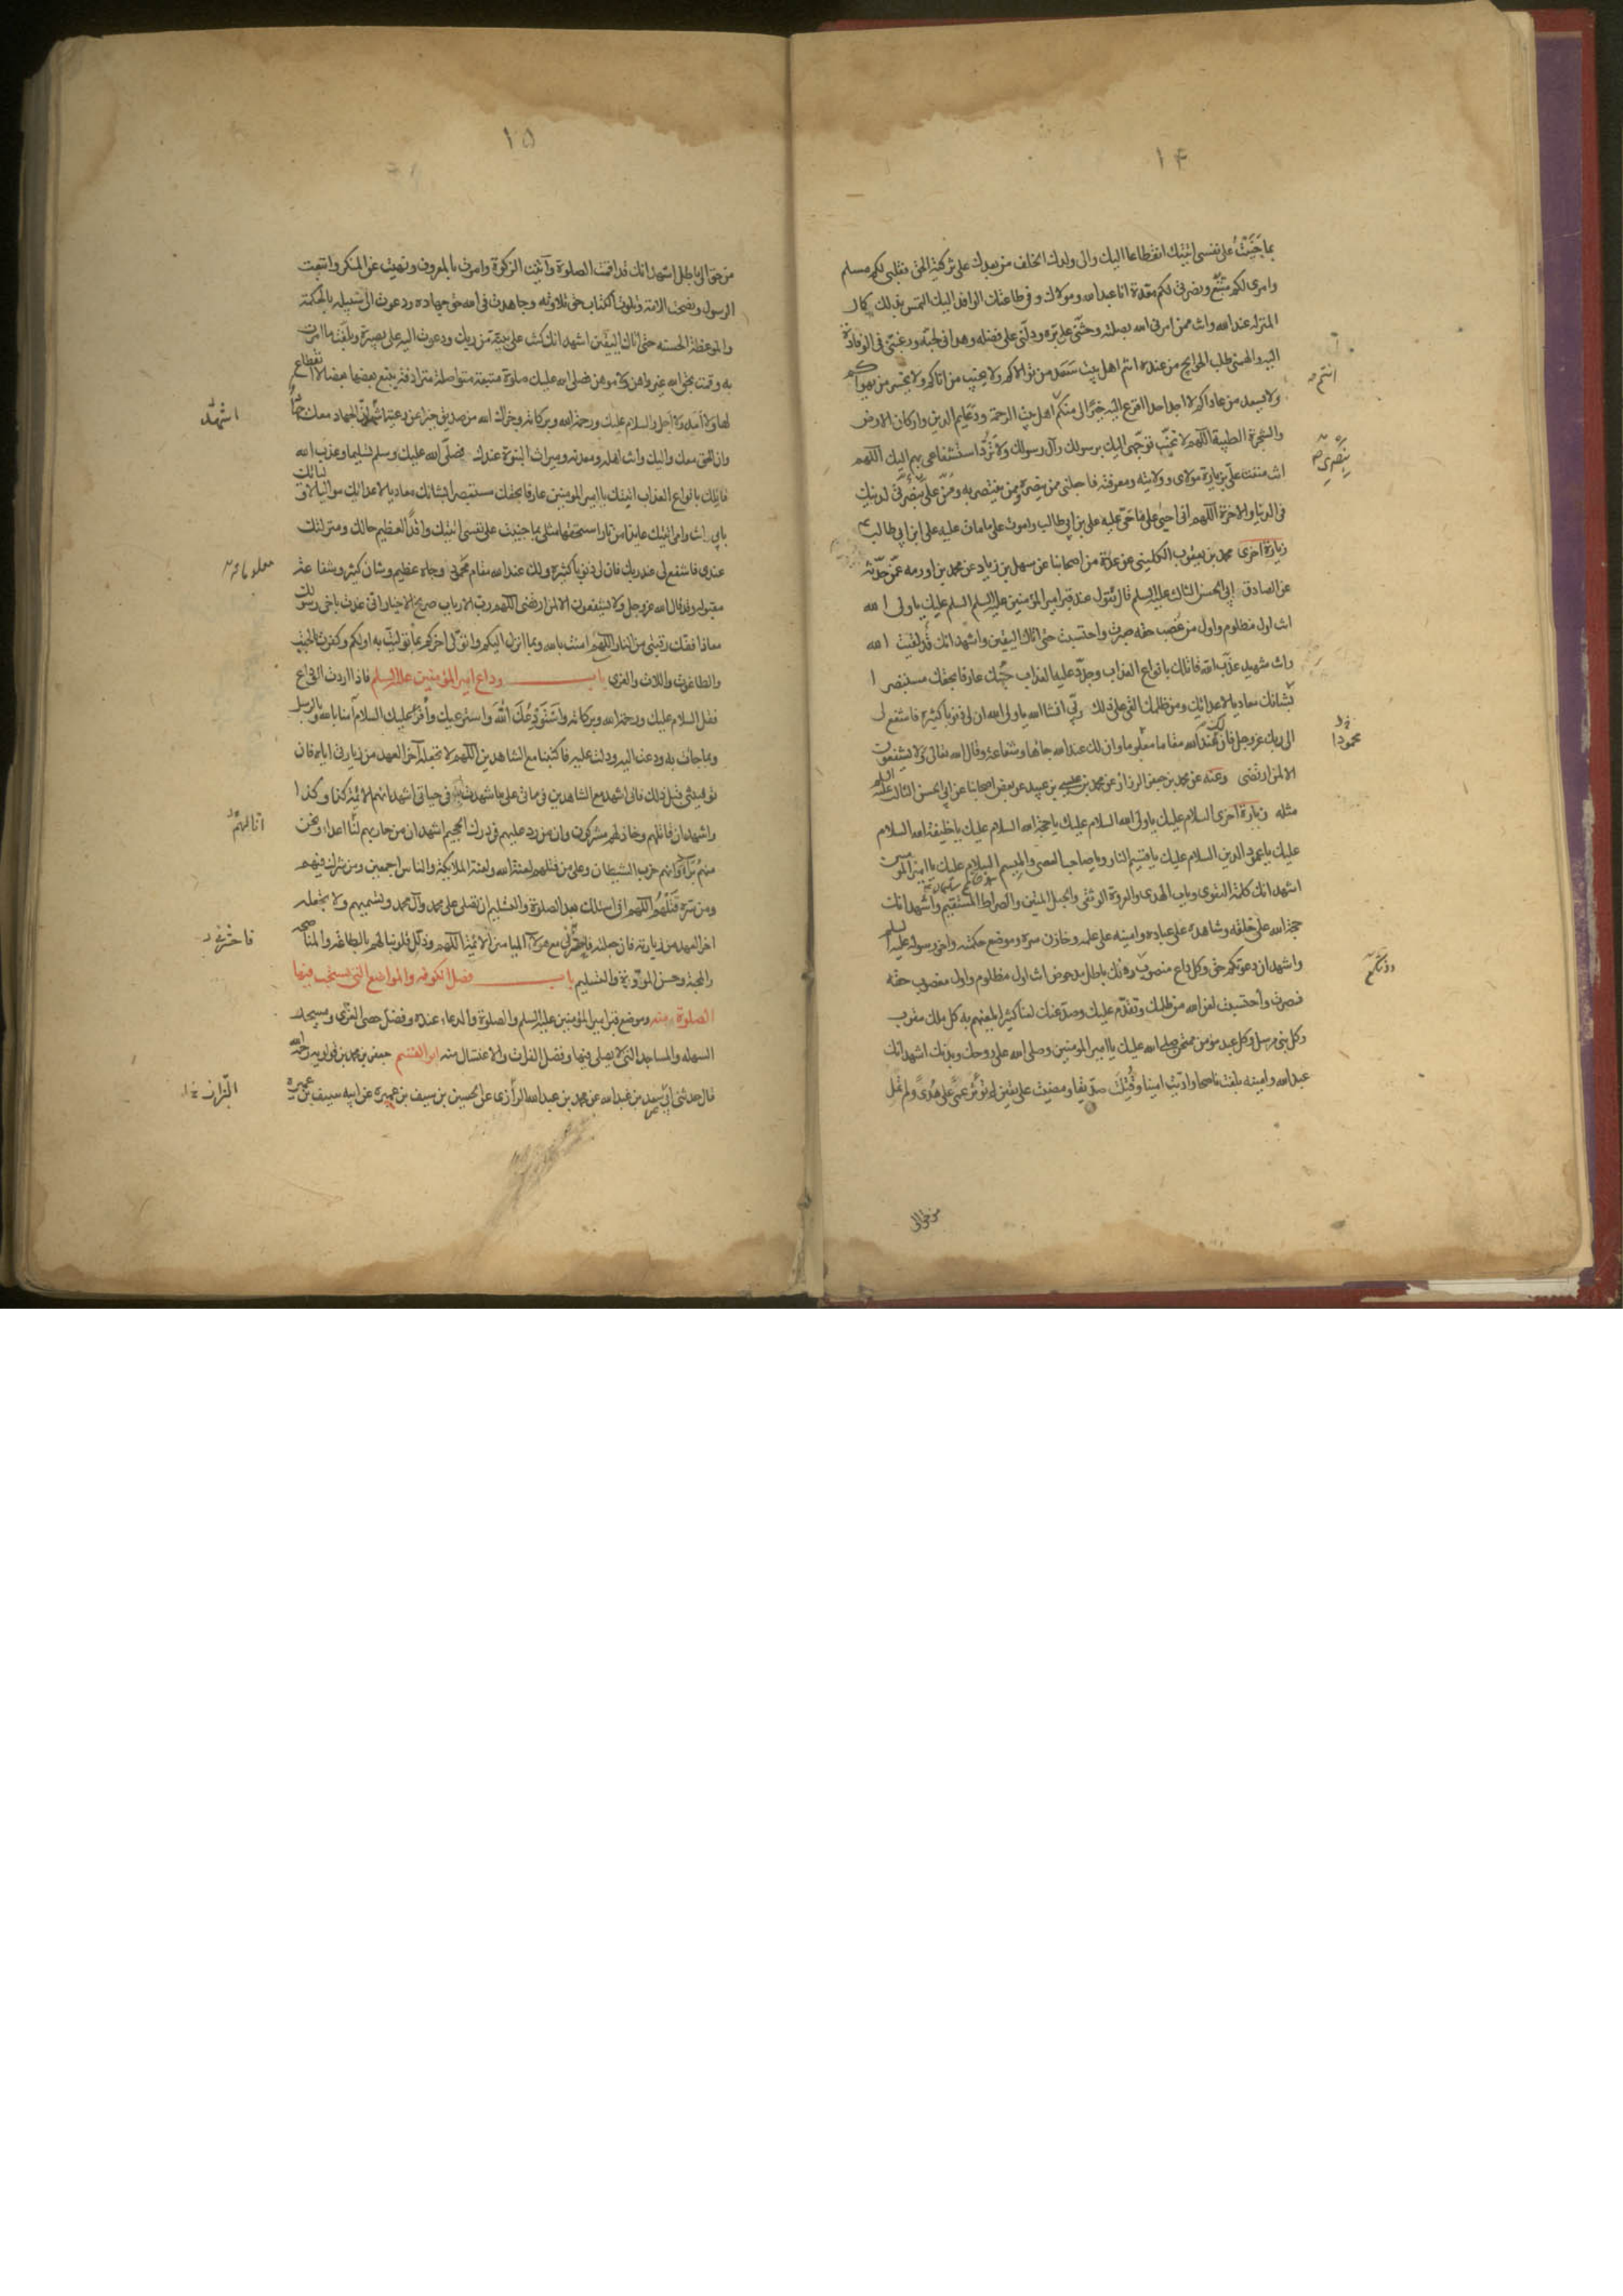 ١۴
بما جَنَيْتُ على نفسى اتيتك انقطاعا اليك والى ولدك الخلف من بعدك على تزكية الحق فقلبى لكم مسلم
وامرى لكم متّبع ونصرتى لكم معدة انا عبد الله ومولاك وفى طاعتك الوافد اليك التمس بذلك كمال
المنزلة عند الله وانت ممن امرنى الله بصلته وحثّنى على برّه ودلّنى على فضله وهدانى لحبّه ورغبتنى فى الوفادة
اليه والهمنى طلب الحوايج من عنده انتم اهل بيت سَعَد من تولاكم ولا يخيب من اتاكم ولا يخسر من يهواكم
ولا يسعد من عاداكم لا اجد احدا افزع اليه خيرًا لى منكم اهل بيت الرحمة ودعايم الدين واركان الارض
والشجرة الطيبة اللهم لا تخيّب توجّهى اليك برسولك وآل رسولك ولا تَرُدّ استشفاعى بهم اليك اللهم
انت مننت علىّ بزيارة مولاى وولايته ومعرفته فاجعلنى ممن ينصره وممن ينتصر به ومُنّ علىّ بنصرى لدينك
فى الدنيا والاخرة اللهم انى احيى على ما حيى عليه على بن ابى طالب واموت على ما مات عليه على ابن ابى طالب ع
زيارة اخرى محمد بن يعقوب الكلينى عن عدة من اصحابنا عن سهل بن زياد عن محمد بن اورمه عمّن حدّثه
عن الصادق ابى الحسن الثالث عليه السلم قال تقول عند قبر امير المؤمنين عليه السلم السلم عليك يا ولى الله
انت اول مظلوم واول من غصب حقه صبرت واحتسبت حتى اتاك اليقين واشهد انك قد لقيت الله
وانت شهيد عذّب الله قاتلك بانواع العذاب وجدّد عليه العذاب جئتك عارفا بحقك مستبصرا
بشانك معاديا لاعدائك ومن ظلمك القى على ذلك ربّى انشا الله يا ولى الله ان لى ذنوبا كثيرة فاشفع لى
الى ربك عزوجل فان لك عند الله مقاما معلوما وان لك عند الله جاها وشفاعة وقال الله تعالى ولا يشفعون
الا لمن ارتضى وعنه عن محمد بن جعفر الرزاز عن محمد بن عيسى بن عبيد عن بعض اصحابنا عن ابى الحسن الثالث عليه السلم
مثله وزيارة اخرى السلام عليك يا ولى الله السلام عليك يا حجة الله السلام عليك يا خليفة الله السلام
عليك يا عمود الدين السلام عليك يا قسيم النار ويا صاحب العصى والميسم السلام عليك يا امير المومنين
اشهد انك كلمة التقوى وباب الهدى والعروة الوثقى والحبل المتين والصراط المستقيم واشهد انك
حجة الله على خلقه وشاهده على عباده وامينه على علمه وخازن سره وموضع حكمته واخى رسوله عليه السلم
واشهد ان دعوتكم حق وكل داع منصوب دونك باطل مدحوض انت اول مظلوم واول مغصوب حقه
فصبرت واحتسبت لعن الله من ظلمك وتقدّم عليك وصدّ عنك لعنا كثيرا يلعنهم به كل ملك مقرب
وكل نبى مرسل وكل عبد مؤمن ممتحن صلى الله عليك يا امير المومنين وصلى الله على روحك وبدنك اشهد انك
عبد الله وامينه بلغت ناصحا واديّت امينا وقُتِلتَ صدّيقا ومضيت على يقين لم تؤثر عمىً على هدىً ولم تمل
انتم
محمودا
من حق الى
١۵
من حق الى باطل اشهد انك قد اقمت الصلوة وآتيت الزكوة وامرت بالمعروف ونهيت عن المنكر واتبعت
الرسول ونصحت الامة وتلوت الكتاب حق تلاوته وجاهدت فى الله حق جهاده ودعوت الى سبيله بالحكمة
والموعظة الحسنه حتى اتاك اليقين اشهد انك كنت على بينة من ربك ودعوت اليه على بصيرة وبلغت ما امرت
به وقمت بحق الله غير واهن ولا موهن فصلى الله عليك صلوة متبعة متواصلة مترادفة يتبع بعضها بعضا لا انقطاع
لها ولا امد ولا اجل والسلام عليك ورحمة الله وبركاته وجزاك الله من صديق خيرا عن رعيته اشهد انّ الجهاد معك جهاد
وان الحق معك واليك وانت اهله ومعدنه وميراث النبوة عندك فصلّى الله عليك وسلم تسليما وعذب الله
قاتلك بانواع العذاب اتيتك يا امير المومنين عارفا بحقك مستبصرا بشانك معاديا لاعدائك مواليا لاوليائك
بابى انت وامى اتيتك عايذا من نار استحقها مثلى بما جنيت على نفسى اتيتك وافدًا لعظيم حالك ومنزلتك
عندى فاشفع لى عند ربك فان لى ذنوبا كثيرة ولك عند الله مقام محمود وجاه عظيم وشان كبير وشفاعة
مقبولة وقد قال الله عزوجل ولا يشفعون الا لمن ارتضى اللهم رب الارباب صريخ الاخيار انى عذت باخى رسولك
معاذا ففك رقبتى من النار اللهم امنت بالله وبما انزل اليكم واتولّى اخركم بما تولّيت به اولكم وكفرت بالجبت
والطاغوت واللات والعزى باب وداع امير المؤمنين عليه السلم فاذا اردت الوداع
فقل السلام عليك ورحمة الله وبركاته واَستَودِعُكَ اللّٰهَ واسترعيك وأقرأ عليك السلام آمنا بالله وبالرسل
وبما جاءت به ودعت اليه ودلت عليه فاكتبنا مع الشاهدين اللهم لا تجعله آخر العهد من زيارتى اياه فان
توفيتنى قبل ذلك فانى اشهد مع الشاهدين فى مماتى على ما شهدت عليه فى حياتى اشهد انهم الائمة كذا وكذا
واشهد ان قاتلهم وخاذلهم مشركون وان من رد عليهم فى درك الجحيم اشهد ان من حاربهم لنا اعداء ونحن
منهم بُرَآءُ وانهم حزب الشيطان وعلى من قتلهم لعنة الله ولعنة الملائكة والناس اجمعين ومن شرك فيهم
ومن سره قَتْلُهُم اللهم انى اسئلك بعد الصلوة والتسليم ان تصلى على محمد وآل محمد وتسميهم ولا تجعله
اخر العهد من زيارته فان جعلته فاحشرنى مع هولاء الميامين الائمة اللهم وذلّل قلوبنا لهم بالطاعة والمناصحة
والمحبة وحسن الموازرة والتسليم باب فضل الكوفه والمواضع التى يستحب فيها
الصلوة منه وموضع قبر امير المؤمنين عليه السلم والصلوة والدعاء عنده وفضل حصى الغرى ومسجد
السهله والمساجد التى لا يصلى فيها وفضل الفرات والاغتسال منه ابو القسم جعفر بن محمد بن قولويه رحمه الله
قال حدثنى ابى سعد بن عبد الله عن محمد بن عبد الله الرازى عن الحسين بن سيف بن عميرة عن ابيه سيف بن عميرة
اشهد